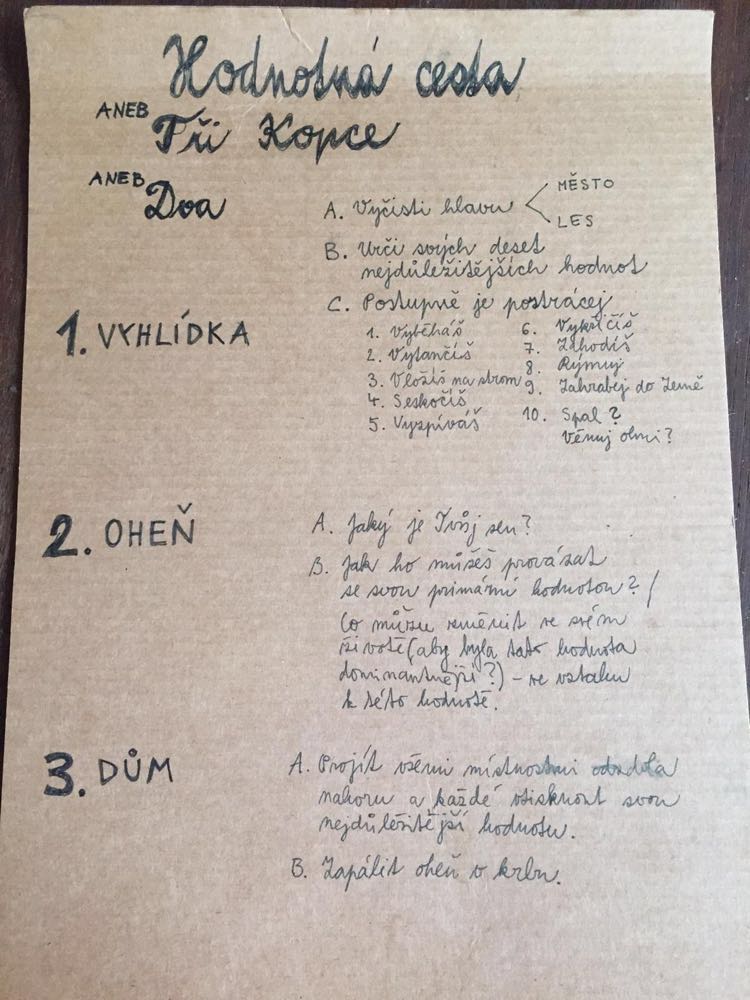 Hodnotná cesta
ANEB Tři Kopce
ANEB Dva
A. Vyčisti hlavu
MĚSTO
LES
B. Urči svých deset
nejdůležitějších hodnot
C. Postupně je postrácej
1. VYHLÍDKA
1. Vyběháš
2. Vytančíš
3. Vložíš na strom
4. Seskočíš
5. Vyzpíváš
6. Vykřičíš
7. Zahodíš
8. Rýmuj
9. Zahrabej do Země
10. Spal?
Věnuj ohni?
2. OHEŇ
A. Jaký je Tvůj sen?
B. Jak ho můžeš provázat
se svou primární hodnotou? /
Co můžu změnit ve svém
životě (aby byla tato hodnota
dominantnější?) – ve vztahu
k této hodnotě.
3. DŮM
A. Projít všemi místnostmi odzdola
nahoru a každé vtisknout svou
nejdůležitější hodnotu.
B. Zapálit oheň v krbu.